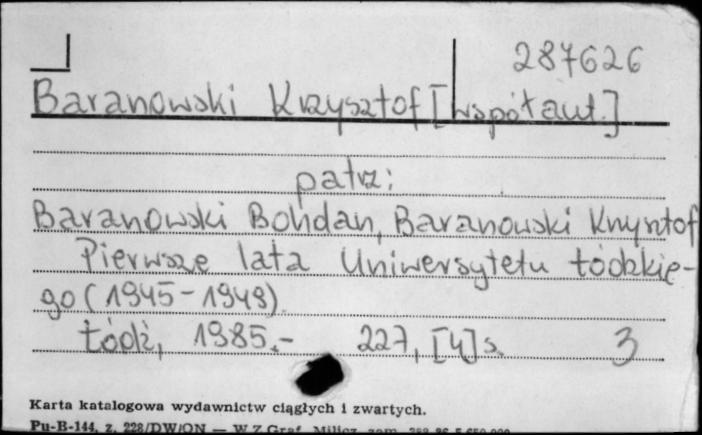 287626
Baranowski Krzysztof [współaut.]
patrz:
Baranowski Bohdan, Baranowski Krzysztof
Pierwsze lata Uniwersytetu Łódzkie-
go (1945-1949)
Łódź, 1985.- 227, [4] s. 3
Karta katalogowa wydawnictw ciągłych i zwartych.
Pu-B-144, z. 228/DW/ON — W Z Graf. Milicz, zam.